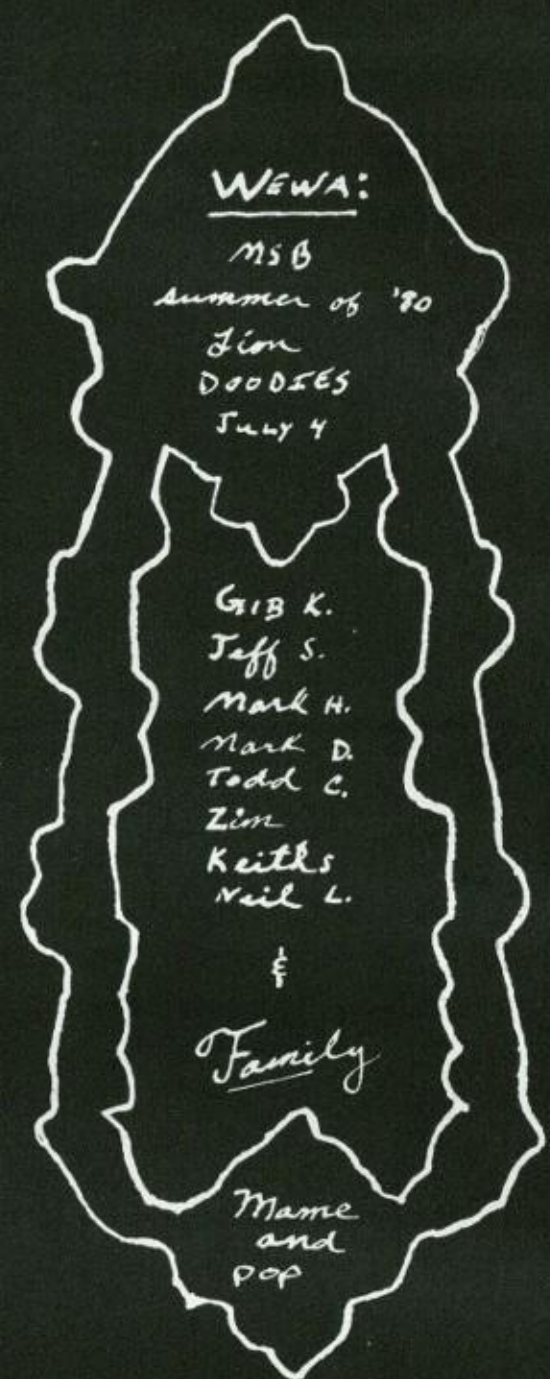 WEWA:
MSB
summer of '80
Lion
DOODIES
July 4
GIB K.
Jeff S.
Mark H.
Mark D.
Todd C.
Zim
Keiths
Neil L.
&
Family
Mame
and
pop